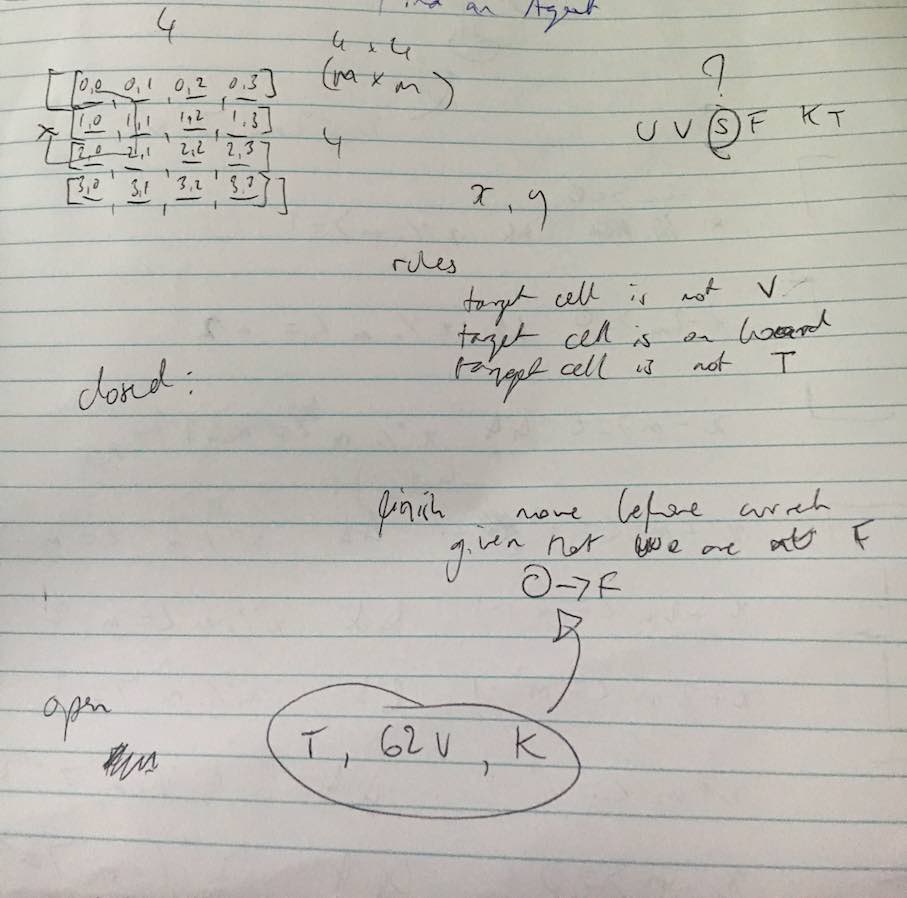 an Agent
4
4 x 4
(m x m)
[[0,0, 0,1, 0,2, 0,3]
[1,0, 1,1, 1,2, 1,3]
[2,0, 2,1, 2,2, 2,3]
[3,0, 3,1, 3,2, 3,3]]
x
4
?
U V S F K T
x, y
rules
target cell is not V
target cell is on board
target cell is not T
closed:
finish move before
given not we are at F
O→F
open
T, 62V, K